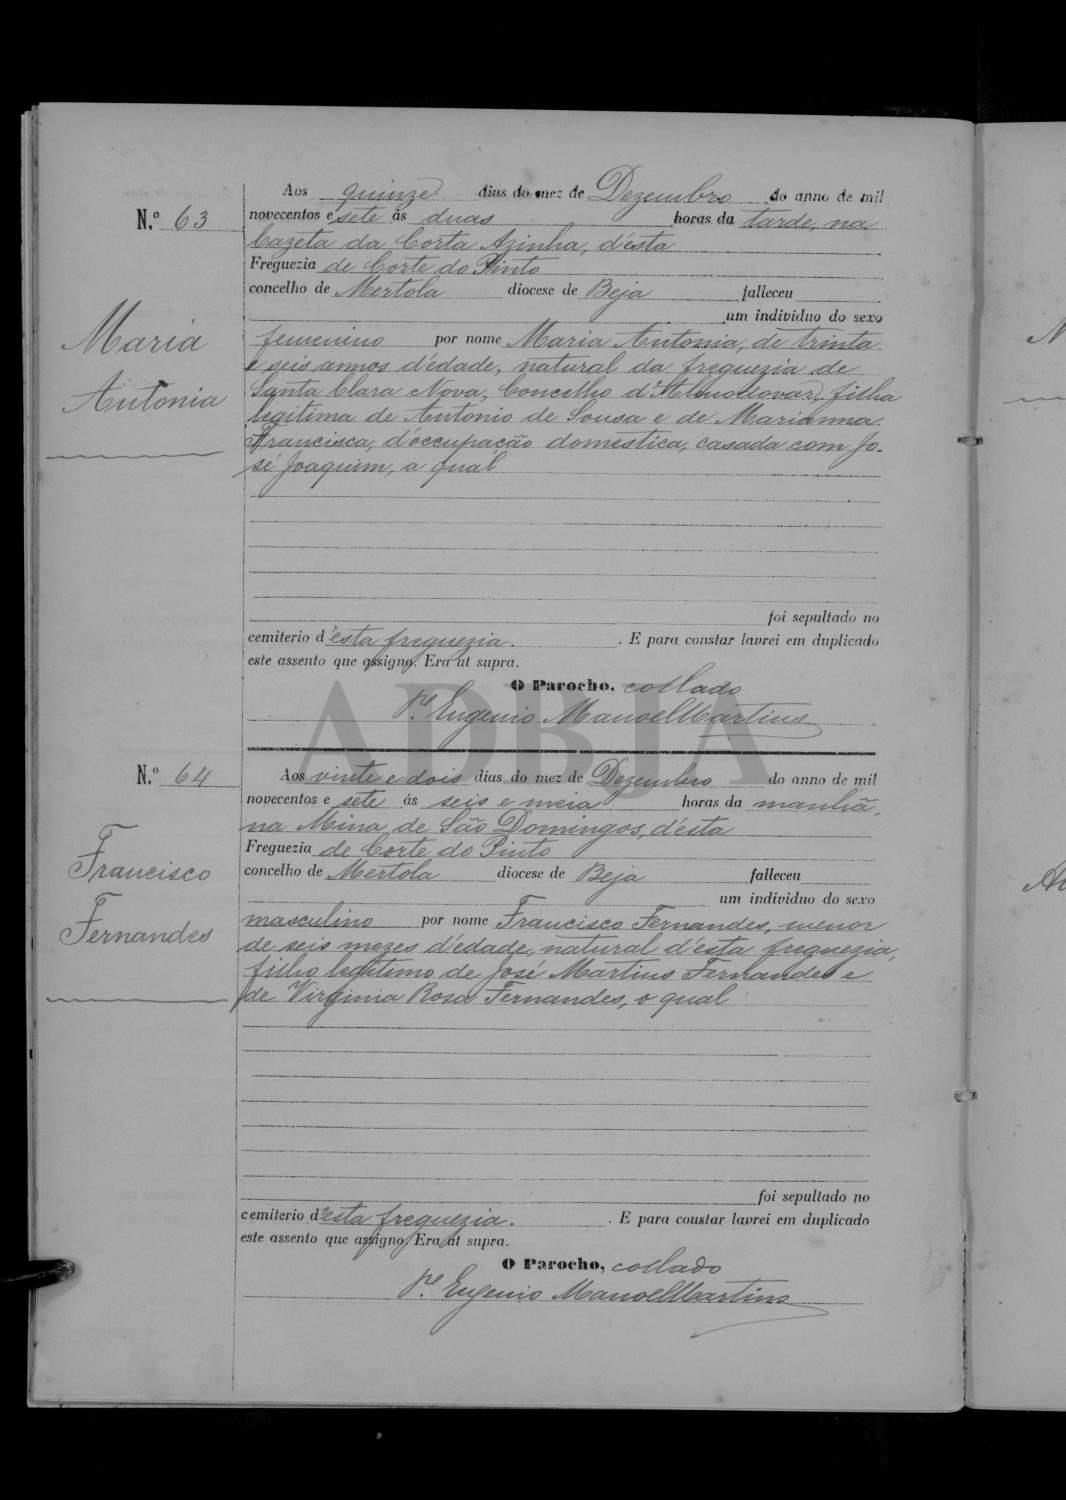 Aos quinze dias do mez de Dezembro do anno de mil
N.º 63
novecentos e sete ás duas horas da tarde, na
Cazeta da Corta Azinha, d'ésta
Freguezia de Corte do Pinto
concelho de Mertola diocese de Beja falleceu
um individuo do sexo
Maria
Antonia
femenino por nome Maria Antonia, de trinta
e seis annos d'édade, natural da freguezia de
Santa Clara Nova, Concelho d'Almodovar, filha
legitima de Antonio de Sousa e de Marianna
Francisca, d'occupação domestica, casada com Jo-
sé Joaquim, a qual
foi sepultado no
cemiterio d'ésta freguezia. . E para constar lavrei em duplicado
este assento que assigno. Era ut supra.
O Parocho, collado
P.e Eugenio Manoel Martins
ADBJA
N.º 64
Aos vinte e dois dias do mez de Dezembro do anno de mil
novecentos e sete ás seis e meia horas da manhã,
na Mina de São Domingos, d'ésta
Freguezia de Corte do Pinto
concelho de Mertola diocese de Beja falleceu
um individuo do sexo
Francisco
Fernandes
masculino por nome Francisco Fernandes, menor
de seis mezes d'édade, natural d'esta freguezia,
filho legitimo de José Martins Fernandes e
de Virginia Rosa Fernandes, o qual
foi sepultado no
cemiterio d'esta freguezia. . E para constar lavrei em duplicado
este assento que assigno. Era ut supra.
O Parocho, collado
P.e Eugenio Manoel Martins